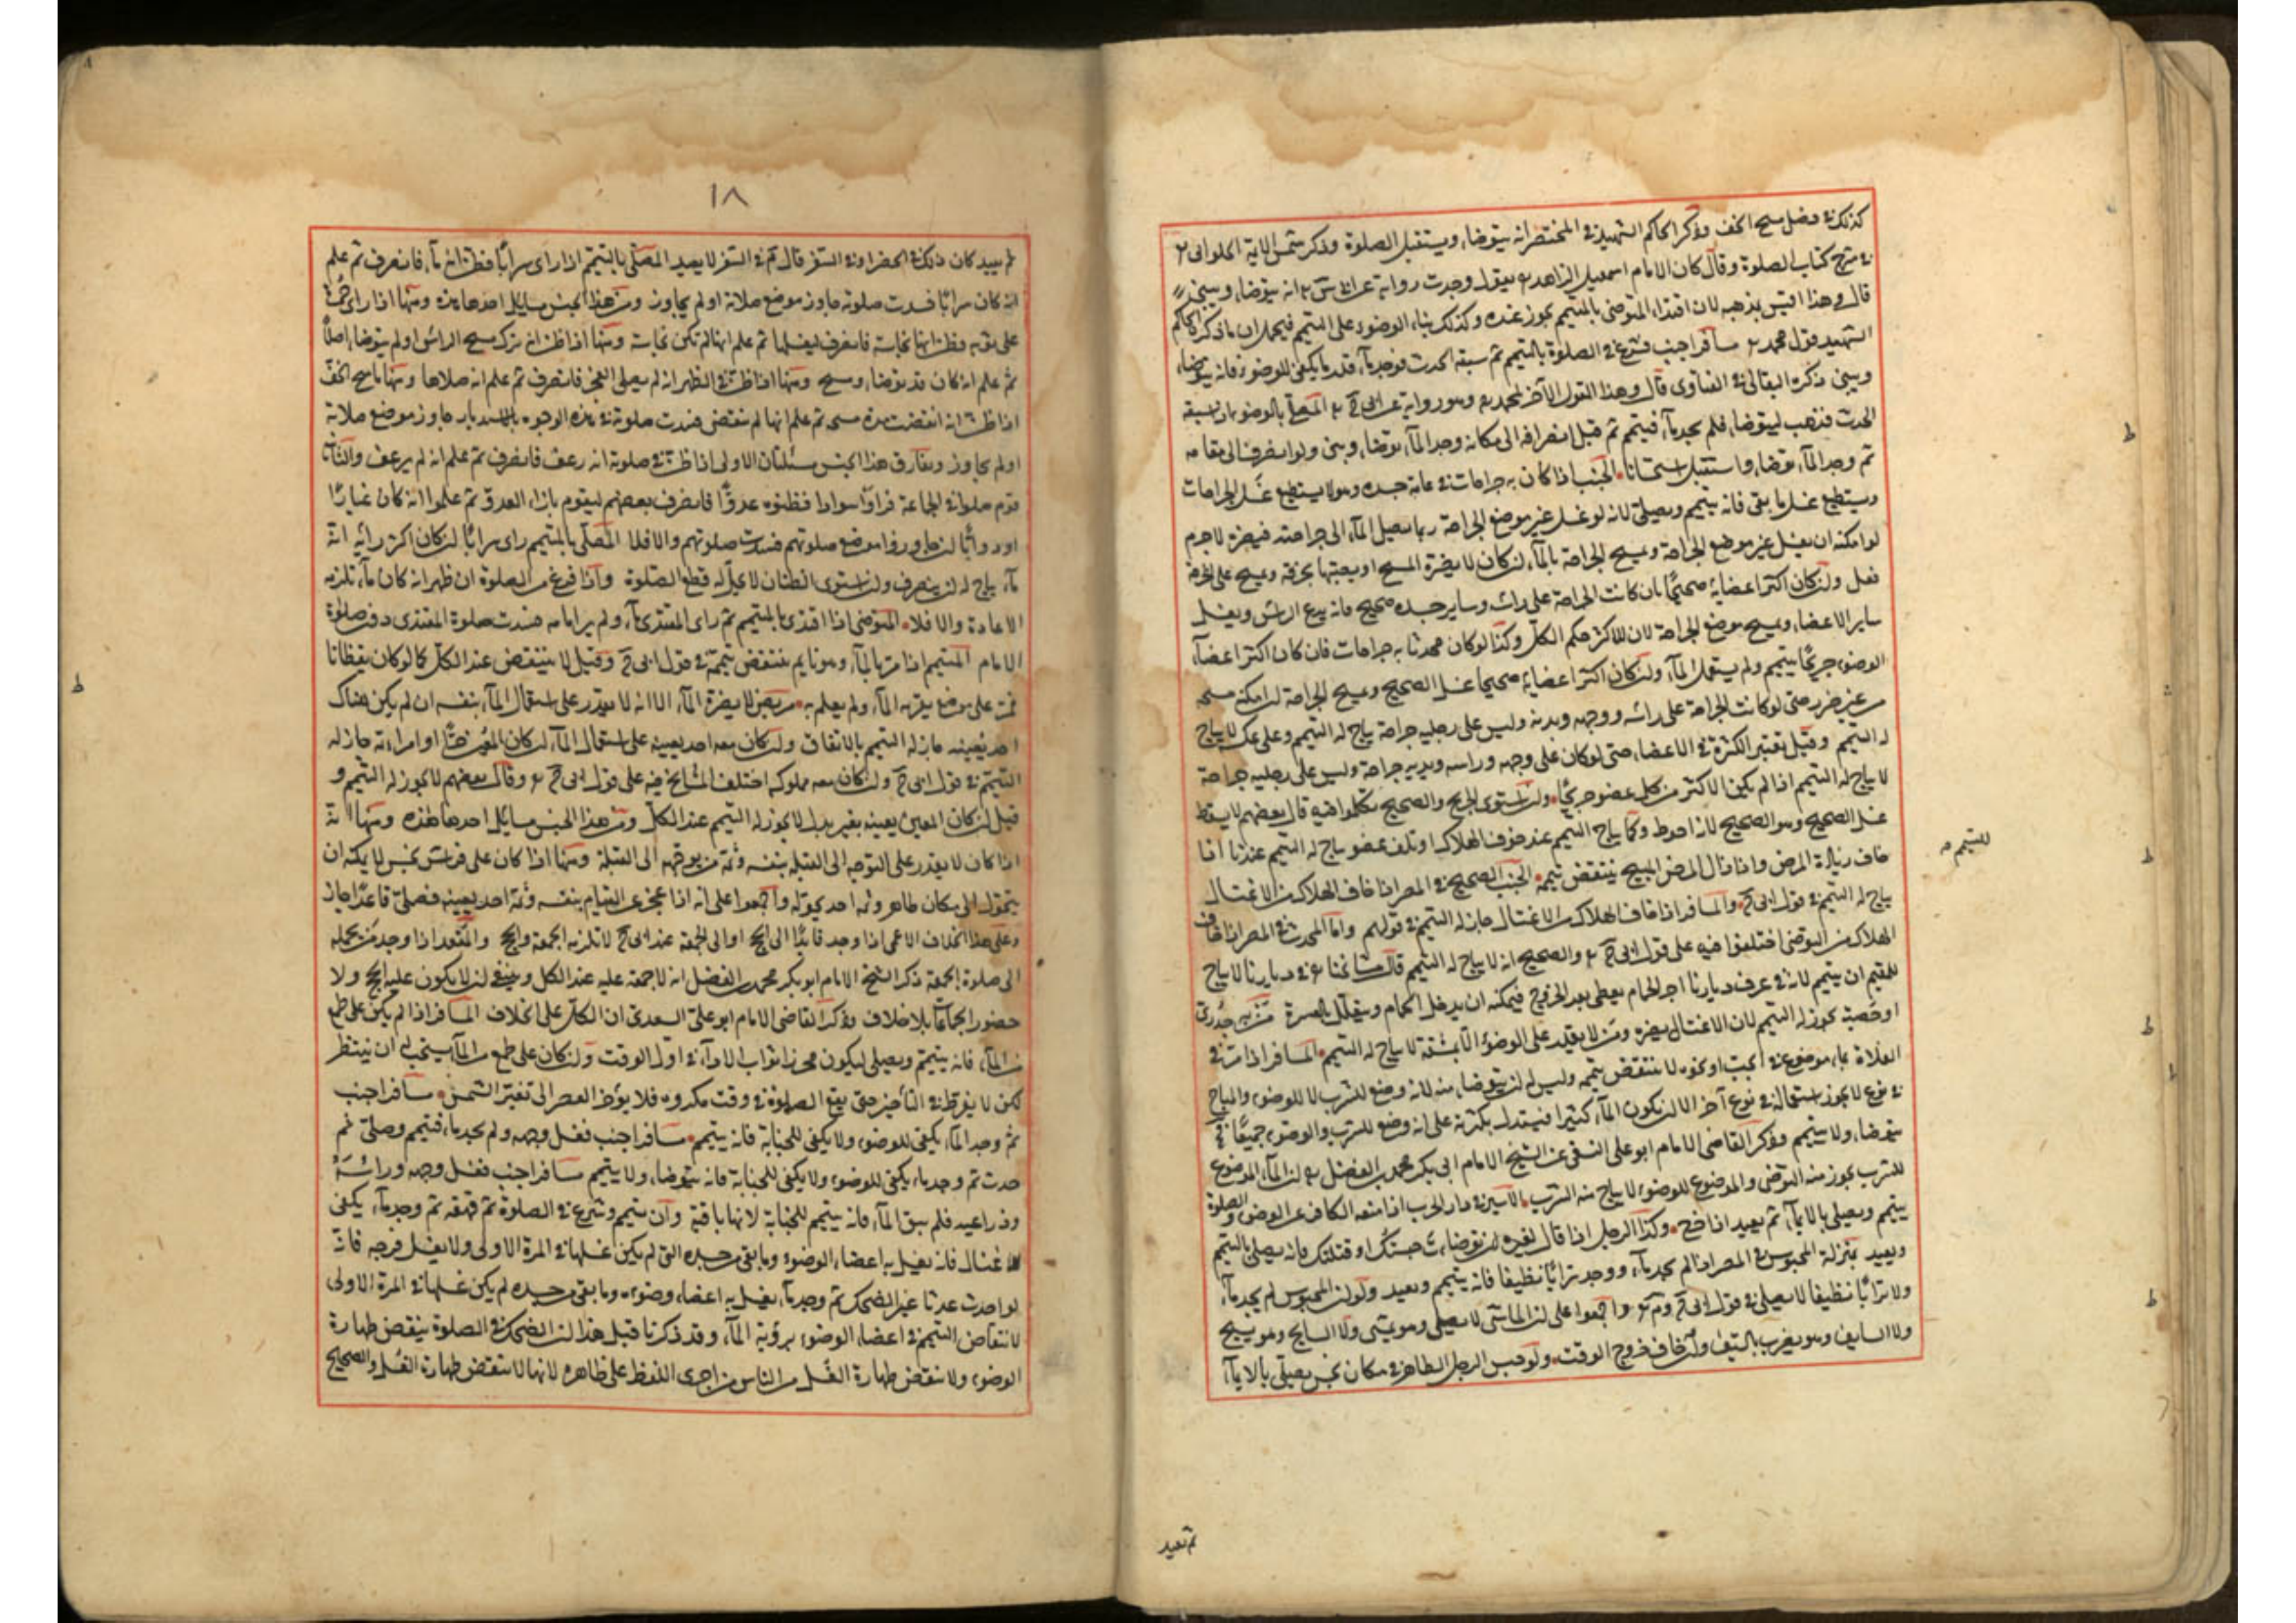 كذلك في فصل مسح الخف وذكر الحاكم الشهيد في المختصر انه يتوضا، ويستقبل الصلوة وذكر شمس الاية الحلواني
في شرح كتاب الصلوة وقال كان الامام اسمعيل الزاهد يقول وجدت رواية عن انه يتوضا، ويبني
قال وهذا اقيس بمذهبه لان اقتدا، المتوضي بالمتيمم يجوز عنده وكذلك بنا، الوضو، على التيمم فيحمل ان ما ذكر الحاكم
الشهيد قول محمد مسافر اجنب فشرع في الصلوة بالتيمم ثم سبقه الحدث فوجد ماء قدر ما يكفي للوضوء فانه يتوضا،
ويبني ذكره البقالي في الفتاوى قال وهذا القول الآخر لمحمد وهو رواية عن المصلي بالوضو، اذا سبقه
الحدث فذهب ليتوضا، فلم يجد ماء فتيمم ثم قبل انصرافه الى مكانه وجد الماء توضا، وبنى ولو انصرف الى مقامه
ثم وجد الماء توضا، واستقبل استحسانا الجنب اذا كان به جراحات في عامة جسده وهو لا يستطيع غسل الجراحات
ويستطيع غسل ما بقي فانه يتيمم ويصلي لانه لو غسل غير موضع الجراحة ربما يصل الماء الى جراحته فيضره لا جرم
لو امكنه ان يغسل غير موضع الجراحة ويمسح الجراحة بالماء ان كان لا يضره المسح او يعصبها بخرقة ويمسح على الخرقة
فعل وان كان اكثر اعضائه صحيحا بان كانت الجراحة على راسه وساير جسده صحيح فانه يدع الراس ويغسل
ساير الاعضا، ويمسح موضع الجراحة لان للاكثر حكم الكل وكذا لو كان محدثا به جراحات فان كان اكثر اعضاء
الوضو، جريحا يتيمم ولم يستعمل الماء وان كان اكثر اعضائه صحيحا غسل الصحيح ويمسح الجراحة ان امكنه مسحه
من غير ضرر حتى لو كانت الجراحة على راسه ووجهه ويديه وليس على رجليه جراحة يباح له التيمم وعلى عكسه لا يباح
له التيمم وقيل تعتبر الكثرة في الاعضا، حتى لو كان على وجهه وراسه ويديه جراحة وليس على رجليه جراحة
لا يباح له التيمم اذا لم يكن الاكثر من كل عضو جريحا وان استوى الجريح والصحيح تكلموا فيه قال بعضهم لا يسقط
غسل الصحيح وهو الصحيح لانه احوط وكما يباح التيمم عند خوف الهلاك او تلف عضو يباح له التيمم عندنا اذا
خاف زيادة المرض واذا زال المرض المبيح ينتقض تيممه الجنب الصحيح في المصر اذا خاف الهلاك من الاغتسال
للتيمم
يباح له التيمم في قول والمسافر اذا خاف الهلاك من الاغتسال جاز له التيمم في قولهم واما المحدث في المصر اذا خاف
الهلاك من التوضي اختلفوا فيه على قول والصحيح انه لا يباح له التيمم قال مشايخنا في ديارنا لا يباح
للمقيم ان يتيمم لانه في عرف ديارنا اجر الحمام يعطى بعد الخروج فيمكنه ان يدخل الحمام ويتعلل بالعسرة من به جدري
او حصبة يجوز له التيمم لان الاغتسال يضره ومن لا يقدر على الوضو، الا بمشقة لا يباح له التيمم المسافر اذا مر في
الفلاة بماء موضوع في الجب او نحوه لا ينتقض تيممه وليس له ان يتوضا، منه لانه وضع للشرب لا للوضو، والمباح
في نوع لا يجوز استعماله في نوع آخر الا ان يكون الماء كثيرا فيستدل بكثرته على انه وضع للشرب والوضو، جميعا
يتوضا، ولا يتيمم وذكر القاضي الامام ابو على النسفي عن الشيخ الامام ابي بكر محمد بن الفضل ان الماء الموضوع
للشرب يجوز منه التوضي والموضوع للوضو، لا يباح منه الشرب الاسير في دار الحرب اذا منعه الكافر عن الوضو، والصلوة
يتيمم ويصلي بالايماء ثم يعيد اذا خرج وكذا الرجل اذا قال لغيره ان توضات حبستك او قتلتك فانه يصلي بالتيمم
ويعيد بمنزلة المحبوس في المصر اذا لم يجد ماء ووجد ترابا نظيفا فانه يتيمم ويعيد ولو ان المحبوس لم يجد ماء
ولا ترابا نظيفا لا يصلي في قول واجمعوا على ان الماشي لا يصلي وهو يمشي ولا السابح وهو يسبح
ولا السايف وهو يضرب بالسيف وان خاف خروج الوقت ولو حبس الرجل الطاهر في مكان نجس يصلي بالايماء
ثم يعيد
١٨
ثم يعيد كان ذلك في الحضر او في السفر قال في السفر لا يعيد المصلي بالتيمم اذا راى سرابا فظن انه ماء فانصرف ثم علم
انه كان سرابا فسدت صلوته جاوز موضع صلاته او لم يجاوز ومن هذا الجنس مسايل احدها هذه ومنها اذا راى حمرة
على ثوبه فظن انها نجاسة فانصرف ليغسلها ثم علم انها لم تكن نجاسة ومنها اذا ظن انه ترك مسح الراس او لم يتوضا، اصلا
ثم علم انه كان قد توضا، ومسح ومنها اذا ظن في الظهر انه لم يصلي الفجر فانصرف ثم علم انه صلاها ومنها ماسح الخف
اذا ظن انه انقضت مدة مسحه ثم علم انها لم تنقض فسدت صلوته في هذه الوجوه جاوز موضع صلاته
او لم يجاوز ويفارق هذا الجنس مسئلتان الاولى اذا ظن في صلوته انه رعف فانصرف ثم علم انه لم يرعف والثانية
قوم صلوا في الجماعة فراوا سوادا فظنوه عدوا فانصرف بعضهم ليقوم بازاء العدو ثم علموا انه كان غبارا
او دوابا ان جاوزوا موضع صلوتهم فسدت صلوتهم والا فلا المصلي بالتيمم راى سرابا ان كان اكبر رايه انه
ماء يباح له ان ينصرف وان استوى الظنان لا يحل له قطع الصلوة واذا فرغ من الصلوة ان ظهر انه كان ماء تلزمه
الاعادة والا فلا المتوضي اذا اقتدى بالمتيمم ثم راى المقتدي ماء ولم ير امامه فسدت صلوة المقتدي دون صلوة
الامام المتيمم اذا مر بالماء وهو نايم ينتقض تيممه في قول وقيل لا ينتقض عند الكل كما لو كان يقظانا
فمر على موضع بقربه الماء ولم يعلم به مريض لا يضره الماء الا انه لا يقدر على استعمال الماء بنفسه ان لم يكن هناك
احد يعينه جاز له التيمم بالاتفاق وان كان معه احد يعينه على استعمال الماء ان كان المعين حرا او امراته جاز له
التيمم في قول وان كان معه مملوكه اختلف المشايخ فيه على قول وقال بعضهم لا يجوز له التيمم و
قيل ان كان المعين يعينه بغير بدل لا يجوز له التيمم عند الكل ومن هذا الجنس مسايل احدها هذه ومنها انه
اذا كان لا يقدر على التوجه الى القبلة بنفسه وثمة من يوجهه الى القبلة ومنها اذا كان على فراش نجس لا يمكنه ان
يتحول الى مكان طاهر وثمه احد يحوله واجمعوا على انه اذا عجز عن القيام بنفسه وثمه احد يعينه فصلى قاعدا جاز
وعلى هذا الخلاف الاعمى اذا وجد قائدا الى الحج او الى الجمعة عند لا تلزمه الجمعة والحج والمقعد اذا وجد من يحمله
الى صلوة الجمعة ذكر الشيخ الامام ابو بكر محمد بن الفضل انه لا جمعة عليه عند الكل وينبغي ان لا يكون عليه الحج ولا
حضور الجماعات بلا خلاف وذكر القاضي الامام ابو على السعدي ان الكل على الخلاف المسافر اذا لم يكن على طمع
من الماء فانه يتيمم ويصلي ليكون محرزا ثواب الاداء في اول الوقت وان كان على طمع من الماء يستحب له ان ينتظر
لكن لا يفرط في التاخير حتى يقع الصلوة في وقت مكروه فلا يؤخر العصر الى تغير الشمس مسافر اجنب
ثم وجد الماء يكفي للوضو، ولا يكفي للجنابة فانه يتيمم مسافر اجنب فغسل وجهه ولم يجد ماء فتيمم وصلى ثم
حدث ثم وجد ماء يكفي للوضو، ولا يكفي للجنابة فانه يتوضا، ولا يتيمم مسافر اجنب فغسل وجهه وراسه
وذراعيه فلم يبق الماء فانه يتيمم للجنابة لانها باقية وان تيمم وشرع في الصلوة ثم قهقه ثم وجد ماء يكفي
للاغتسال فانه يغسل به اعضا، الوضوء وما بقي من جسده التي لم يكن غسلها في المرة الاولى ولا يغسل فرجه فانه
لو احدث حدثا غير الضحك ثم وجد ماء يغسل به اعضا، وضوءه وما بقي من جسده لم يكن غسلها في المرة الاولى
لانتقاض التيمم في اعضا، الوضو، برؤية الماء وقد ذكرنا قبل هذا ان الضحك في الصلوة ينقض طهارة
الوضو، ولا ينقض طهارة الغسل من الناس من اجرى اللفظ على ظاهره لانها لا تنقض طهارة الغسل والصحيح